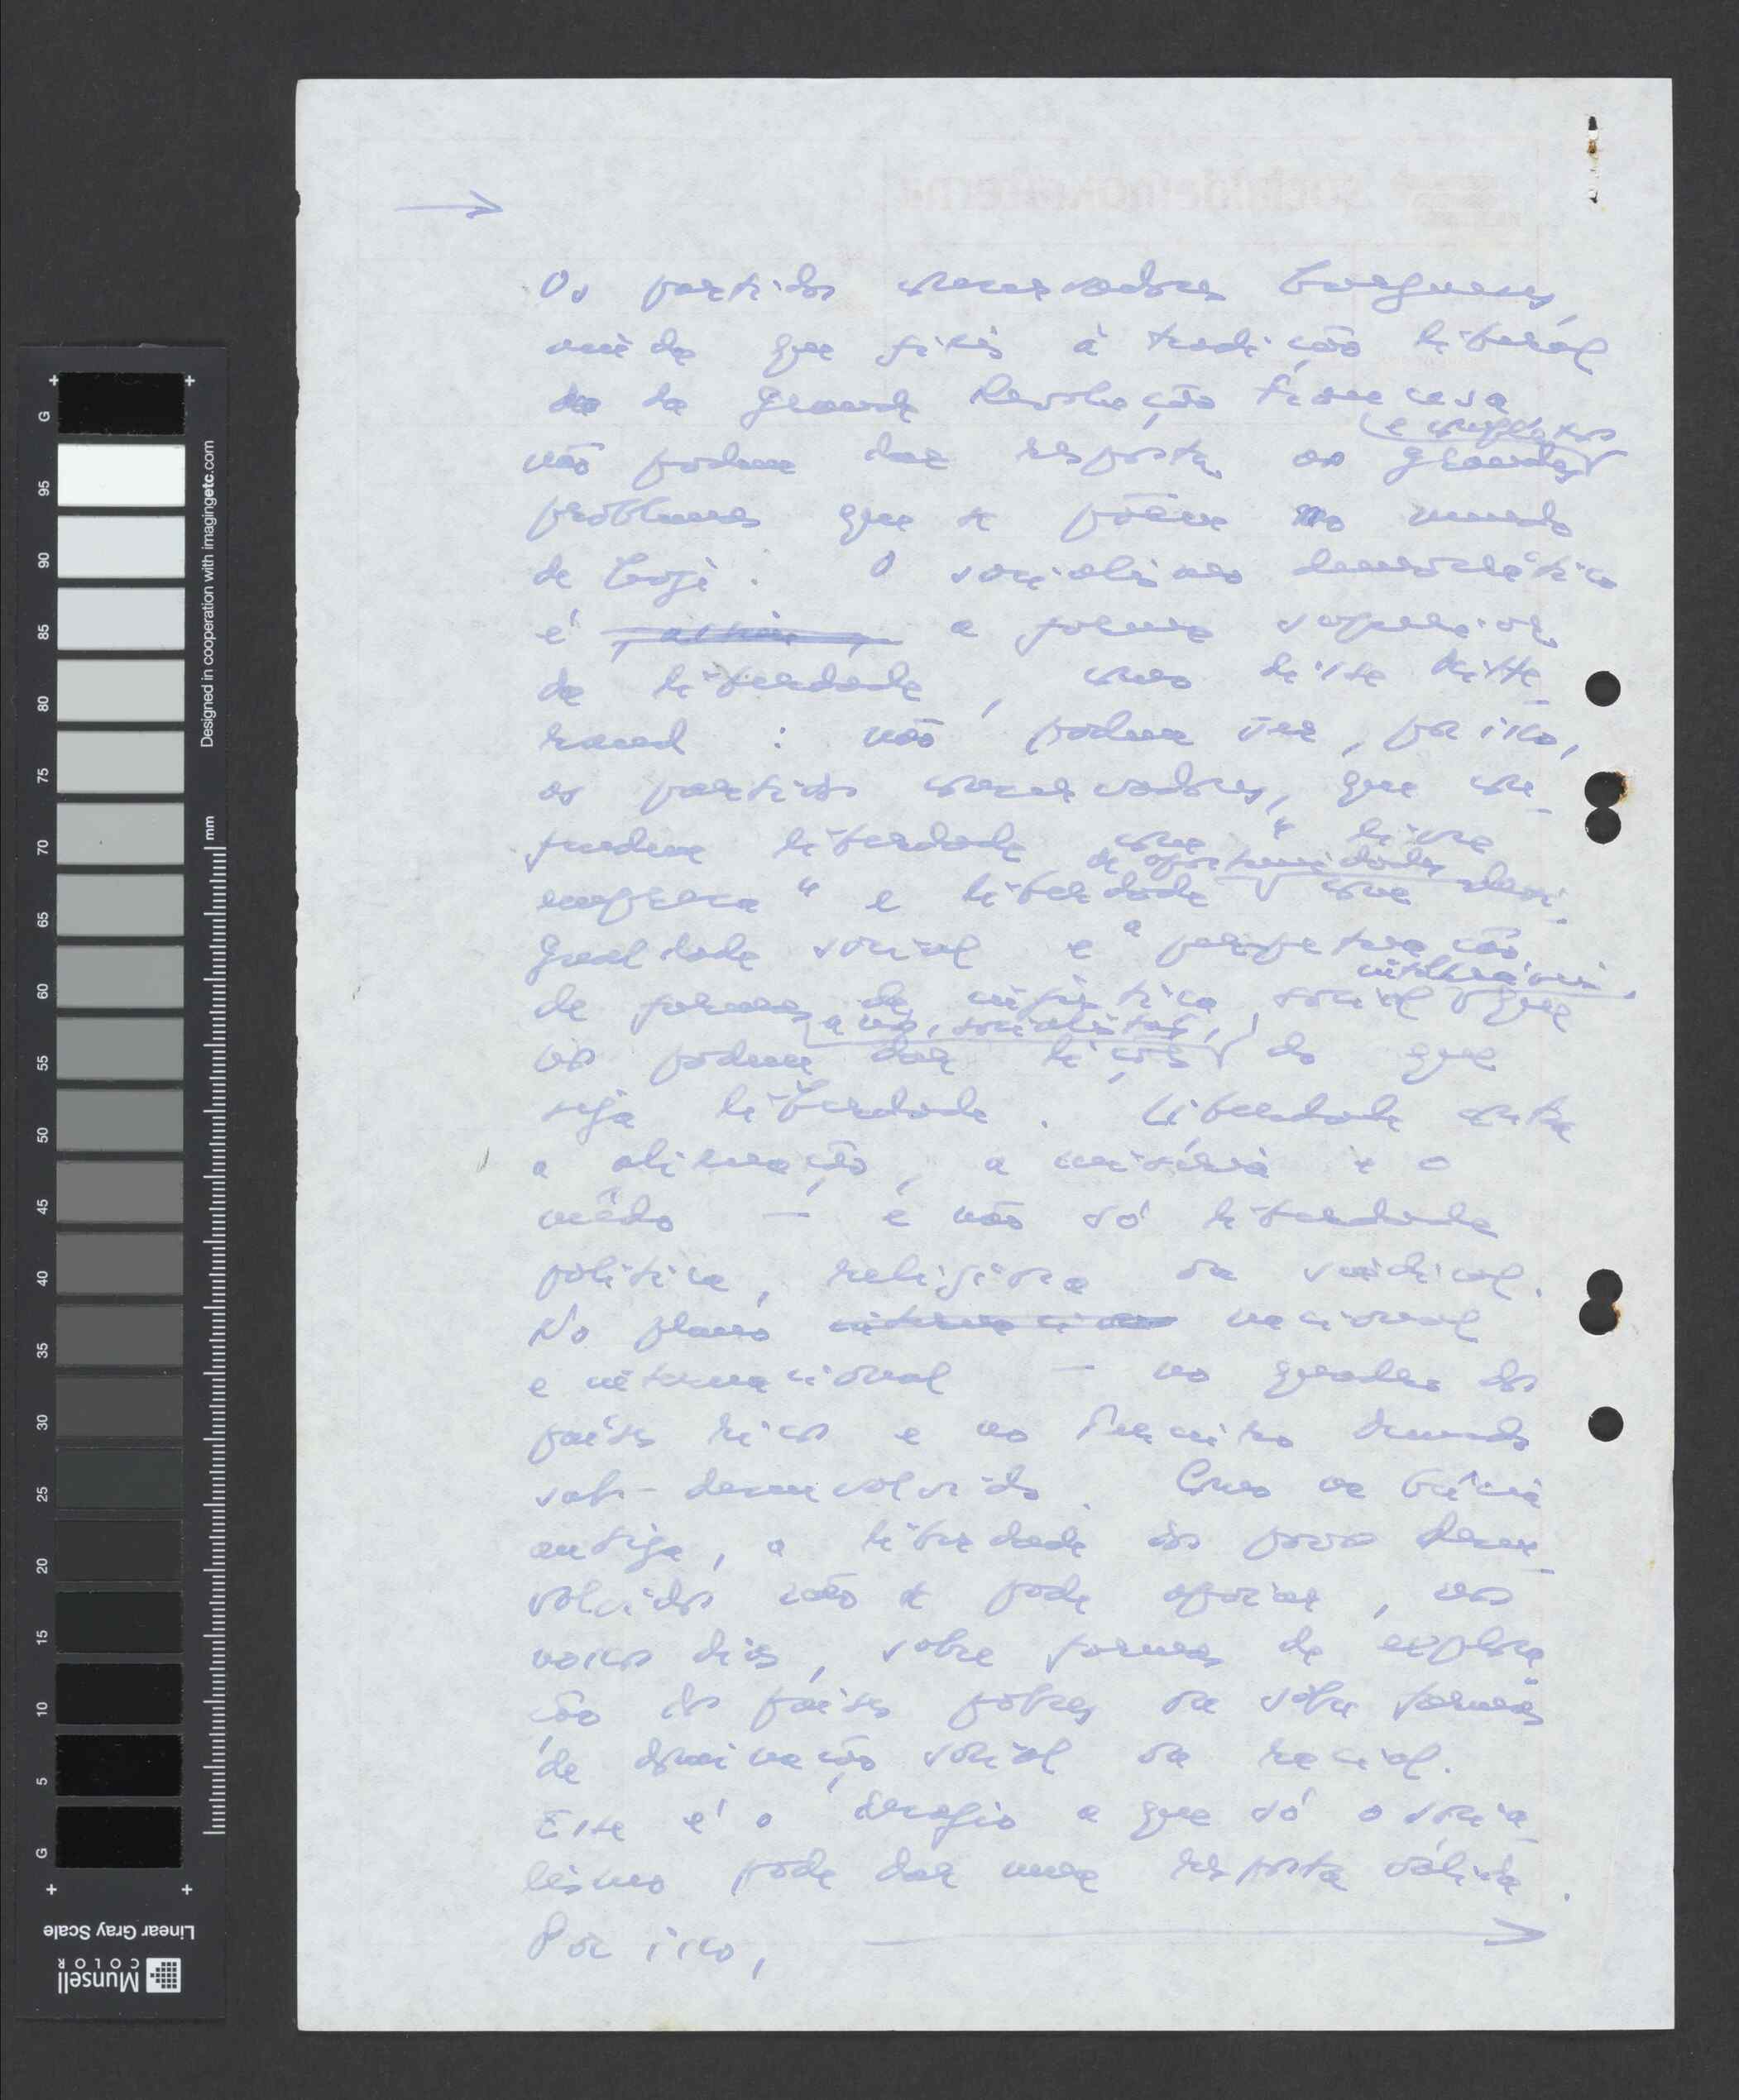 Os partidos conservadores burgueses,
ainda que fiéis à tradição liberal
da Grande Revolução Francesa
não podem dar resposta aos grandes
e complexos
problemas que se põem no mundo
de hoje. O socialismo democrático
é , assim, a forma superior
da liberdade, como disse Mitte-
rand: não podem ser, por isso,
os partidos conservadores, que con-
fundem liberdade com "livre
empresa" e liberdade com desi-
de oportunidades
gualdade social e a perpetuação
de formas de injustiça social que
intoleráveis,
nos podem dar lições do que
a nós, socialistas,
seja liberdade. Liberdade contra
a alienação, a miséria e o
mêdo — e não só liberdade
política, religiosa ou sindical.
No plano nacional
e internacional — no quadro dos
países ricos e no Terceiro Mundo
sub-desenvolvido. Como na Grécia
antiga, a liberdade dos povos desen-
volvidos não se pode apoiar, nos
nossos dias, sobre formas de explora-
ção dos países pobres ou sobre formas
de dominação social ou racial.
Este é o desafio a que só o socia-
lismo pode dar uma resposta válida.
Por isso,